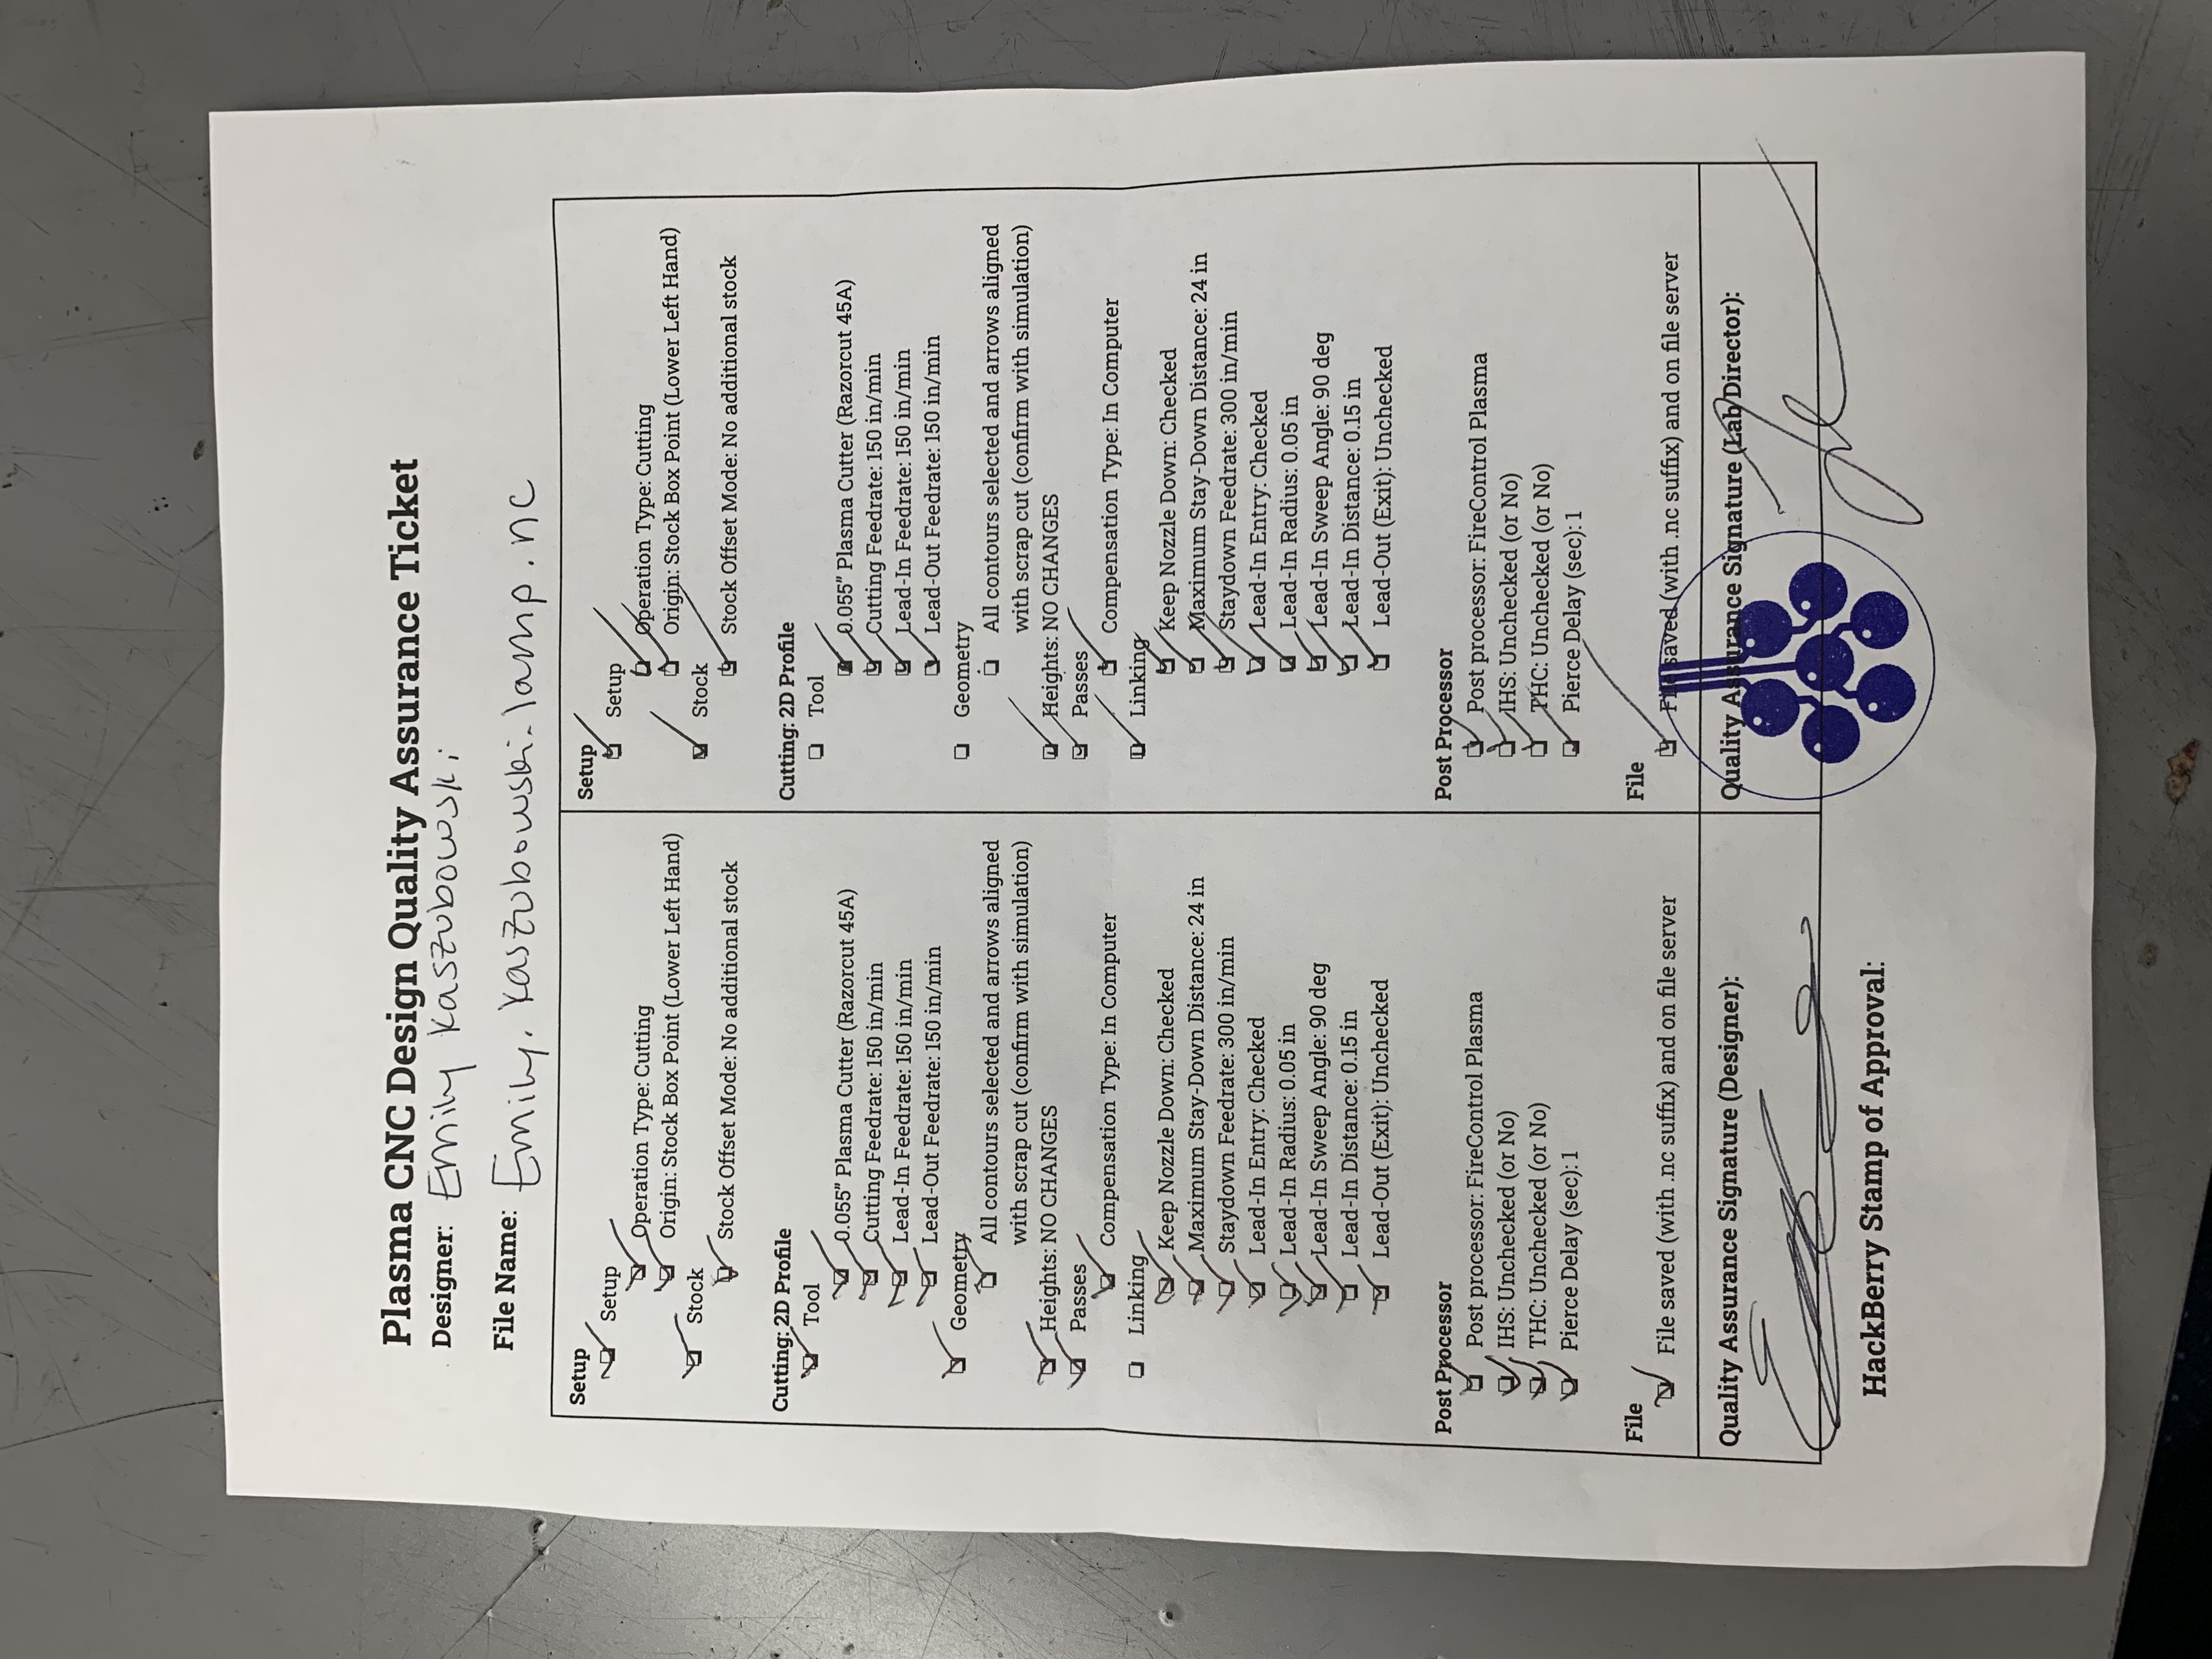 Plasma CNC Design Quality Assurance Ticket
Designer: Emily Kaszubowski
File Name: Emily.kaszubowski-lamp.nc
Setup
Setup
Operation Type: Cutting
Origin: Stock Box Point (Lower Left Hand)
Stock
Stock Offset Mode: No additional stock
Cutting: 2D Profile
Tool
0.055” Plasma Cutter (Razorcut 45A)
Cutting Feedrate: 150 in/min
Lead-In Feedrate: 150 in/min
Lead-Out Feedrate: 150 in/min
Geometry
All contours selected and arrows aligned
with scrap cut (confirm with simulation)
Heights: NO CHANGES
Passes
Compensation Type: In Computer
Linking
Keep Nozzle Down: Checked
Maximum Stay-Down Distance: 24 in
Staydown Feedrate: 300 in/min
Lead-In Entry: Checked
Lead-In Radius: 0.05 in
Lead-In Sweep Angle: 90 deg
Lead-In Distance: 0.15 in
Lead-Out (Exit): Unchecked
Post Processor
Post processor: FireControl Plasma
IHS: Unchecked (or No)
THC: Unchecked (or No)
Pierce Delay (sec): 1
File
File saved (with .nc suffix) and on file server
Quality Assurance Signature (Designer):
Setup
Setup
Operation Type: Cutting
Origin: Stock Box Point (Lower Left Hand)
Stock
Stock Offset Mode: No additional stock
Cutting: 2D Profile
Tool
0.055” Plasma Cutter (Razorcut 45A)
Cutting Feedrate: 150 in/min
Lead-In Feedrate: 150 in/min
Lead-Out Feedrate: 150 in/min
Geometry
All contours selected and arrows aligned
with scrap cut (confirm with simulation)
Heights: NO CHANGES
Passes
Compensation Type: In Computer
Linking
Keep Nozzle Down: Checked
Maximum Stay-Down Distance: 24 in
Staydown Feedrate: 300 in/min
Lead-In Entry: Checked
Lead-In Radius: 0.05 in
Lead-In Sweep Angle: 90 deg
Lead-In Distance: 0.15 in
Lead-Out (Exit): Unchecked
Post Processor
Post processor: FireControl Plasma
IHS: Unchecked (or No)
THC: Unchecked (or No)
Pierce Delay (sec): 1
File
File saved (with .nc suffix) and on file server
Quality Assurance Signature (Lab Director):
HackBerry Stamp of Approval: